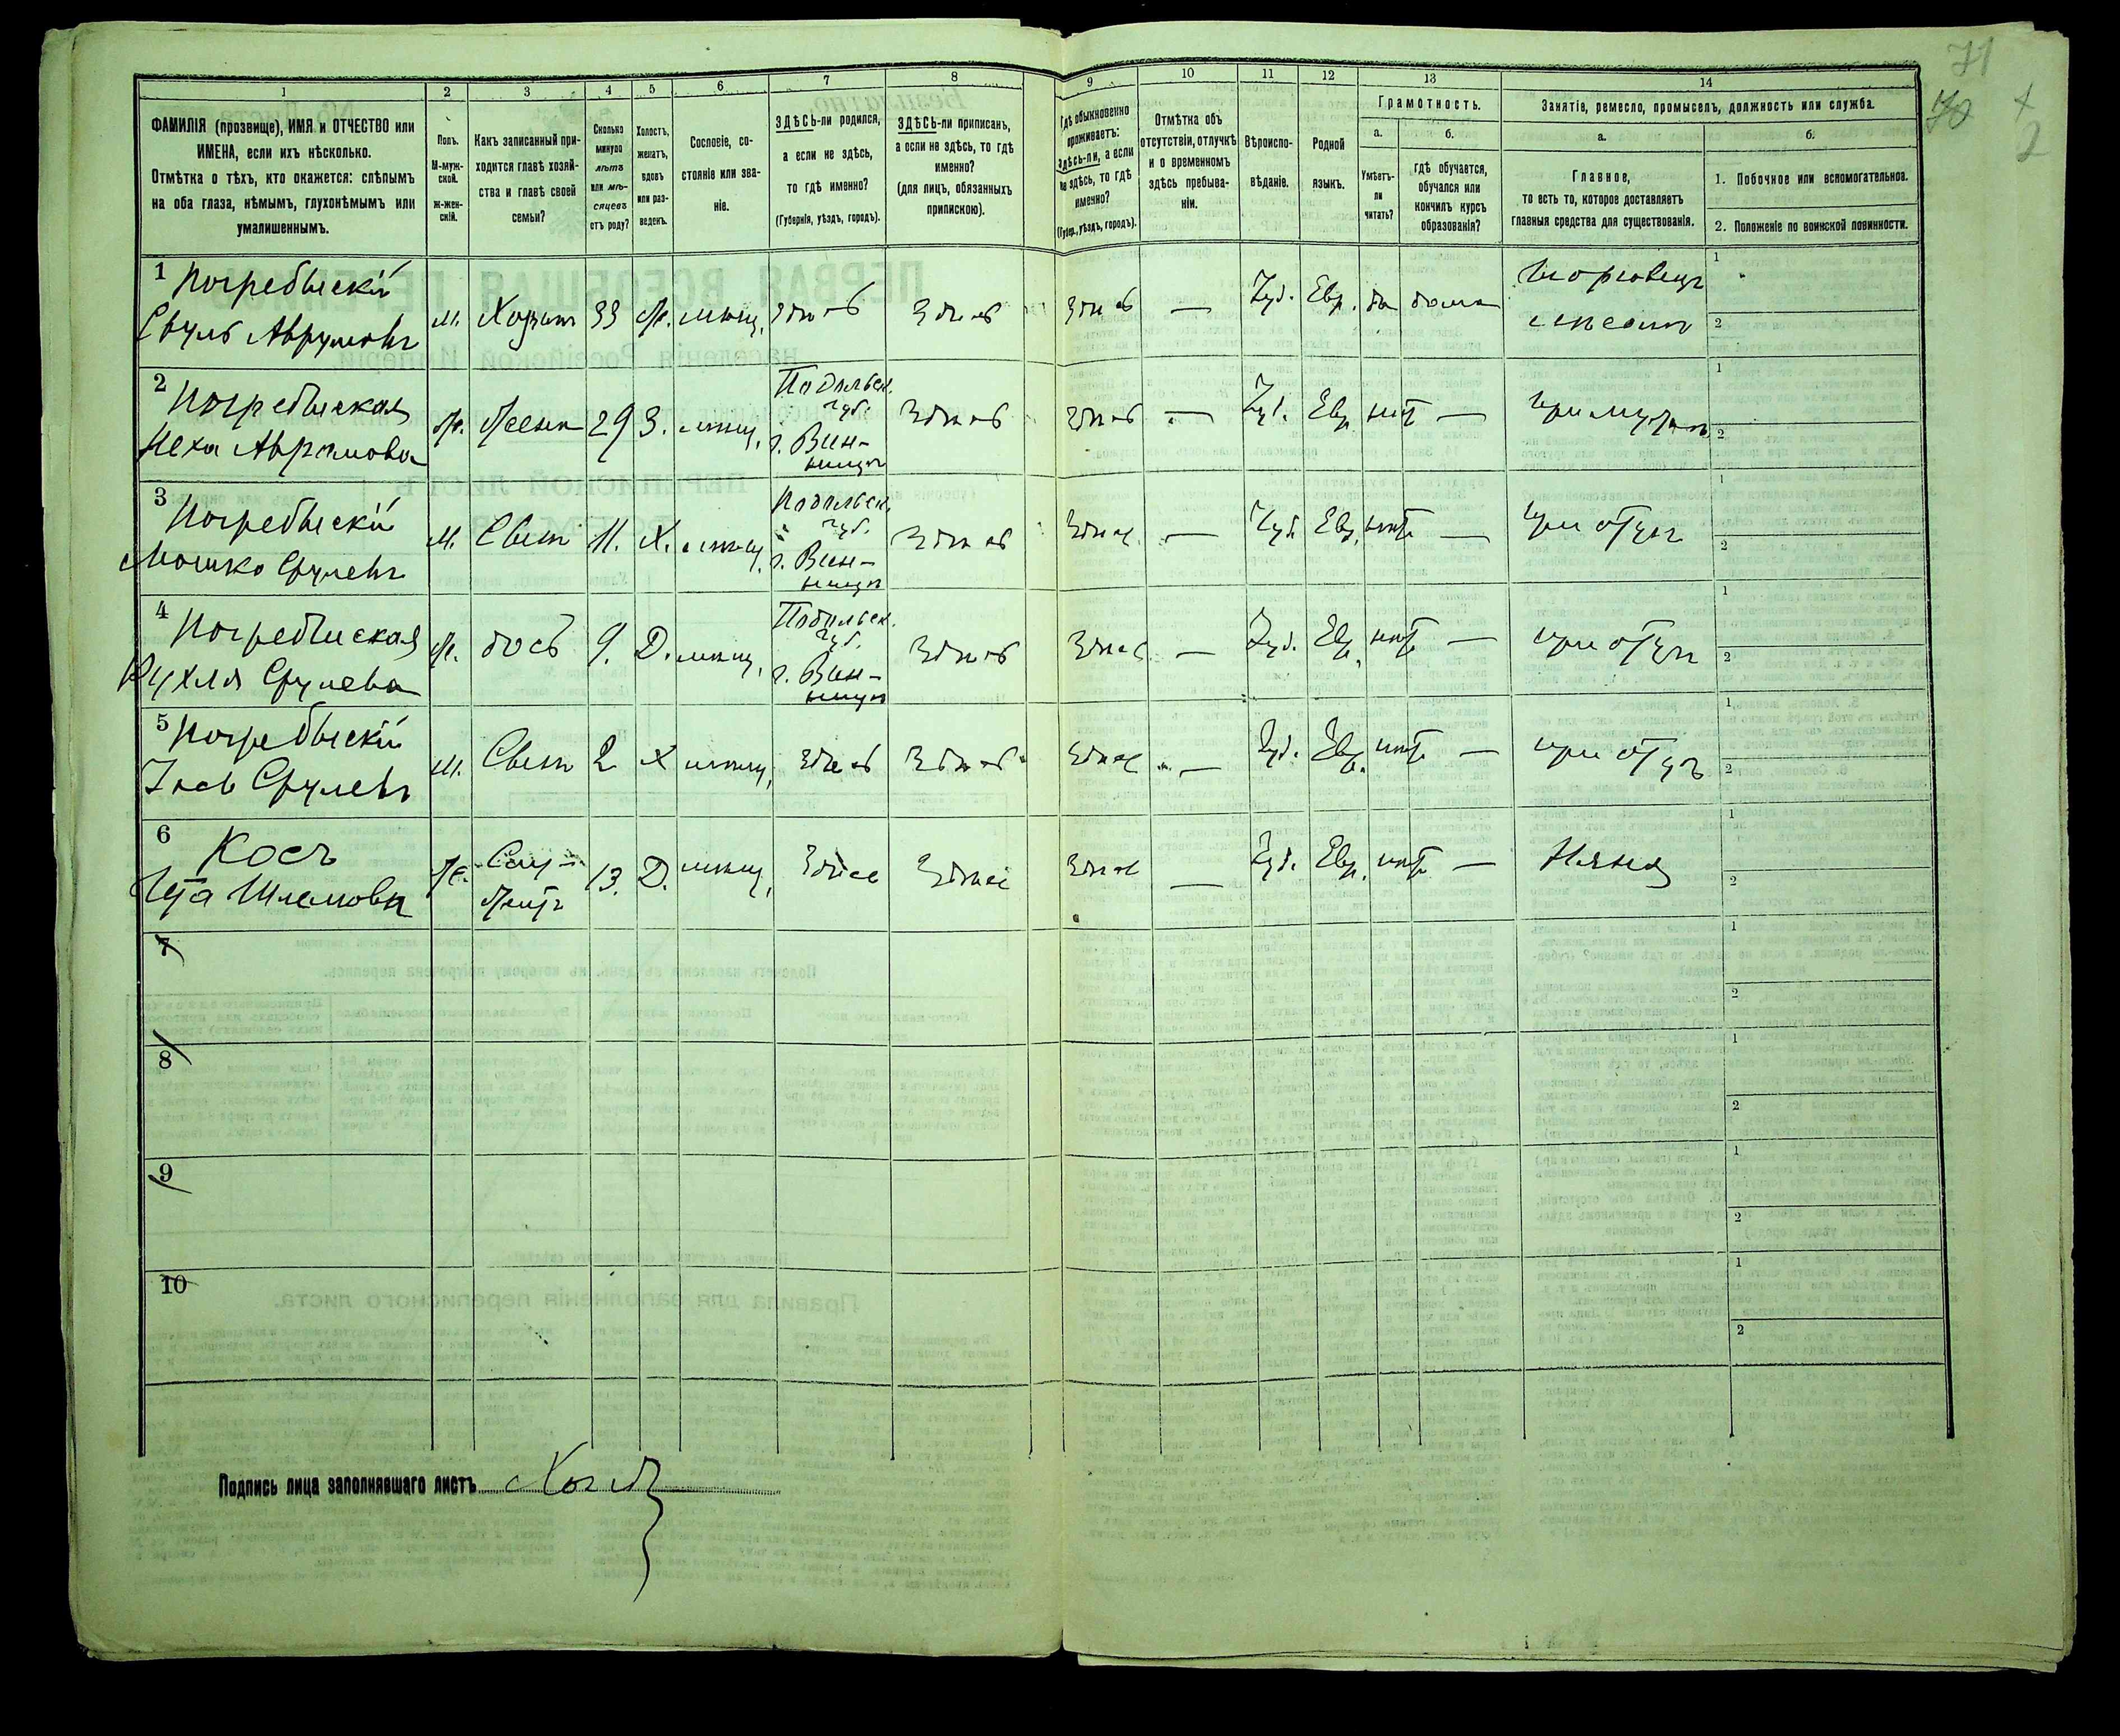 71
70
+
2
1
2
3
4
5
6
7
8
9
10
11
12
13
14
ФАМИЛІЯ (прозвище), ИМЯ и ОТЧЕСТВО или
ИМЕНА, если ихъ нѣсколько.
Отмѣтка о тѣхъ, кто окажется: слѣпымъ
на оба глаза, нѣмымъ, глухонѣмымъ или
умалишеннымъ.
Полъ.
М-муж-
ской.
ж-жен-
скій.
Какъ записанный при-
ходится главѣ хозяй-
ства и главѣ своей
семьи?
Сколько
минуло
лѣтъ
или мѣ-
сяцевъ
отъ роду?
Холостъ,
женатъ,
вдовъ
или раз-
веденъ.
Сословіе, со-
стояніе или зва-
ніе.
ЗДѢСЬ-ли родился,
а если не здѣсь,
то гдѣ именно?
(Губернія, уѣздъ, городъ).
ЗДѢСЬ-ли приписанъ,
а если не здѣсь, то гдѣ
именно?
(для лицъ, обязанныхъ
припискою).
Гдѣ обыкновенно
проживаетъ:
здѣсь-ли, а если
не здѣсь, то гдѣ
именно?
(Губер., уѣздъ, городъ).
Отмѣтка объ
отсутствіи, отлучкѣ
и о временномъ
здѣсь пребыва-
ніи.
Вѣроиспо-
вѣданіе.
Родной
языкъ.
Грамотность.
а.
Умѣетъ-
ли
читать?
б.
гдѣ обучается,
обучался или
кончилъ курсъ
образованія?
Занятіе, ремесло, промыселъ, должность или служба.
а.
Главное,
то есть то, которое доставляетъ
главныя средства для существованія.
б.
1. Побочное или вспомогательное.
2. Положеніе по воинской повинности.
1 Погребыскій
Сруль Аврумовъ
м. Хозяин 33 Ж. мѣщ. здѣсь Здѣсь Здѣсь — Іуд. Евр. да дома
торговецъ
мясомъ
2 Погребыская
Неха Аврамова
ж. Жена 29 З. мѣщ.
Подольск.
губ.
г. Вин-
ница
Здѣсь здѣсь — Іуд. Евр. нѣт — при мужѣ
3 Погребыскій
Мошко Срулевъ
м. Сынъ 11. Х. мѣщ.
Подольск.
губ.
г. Вин-
ница
Здѣсь Здѣсь — Іуд. Евр. нѣт — при отцѣ
4 Погребыская
Рухля Срулева
ж. дочь 9. Д. мѣщ.
Подольск.
губ.
г. Вин-
ница
Здѣсь Здѣсь — Іуд. Евр. нѣт — при отцѣ
5 Погребыскій
Іось Срулевъ
м. Сынъ 2 Х мѣщ. здѣсь Здѣсь Здѣсь — Іуд. Евр. нѣт — при отцѣ
6 Косъ
Ита Шлемова
ж. Слу-
житъ
13. Д. мѣщ. Здѣсь Здѣсь Здѣсь — Іуд. Евр. нѣт — Няня
7
8
9
10
Подпись лица заполнявшаго листъ